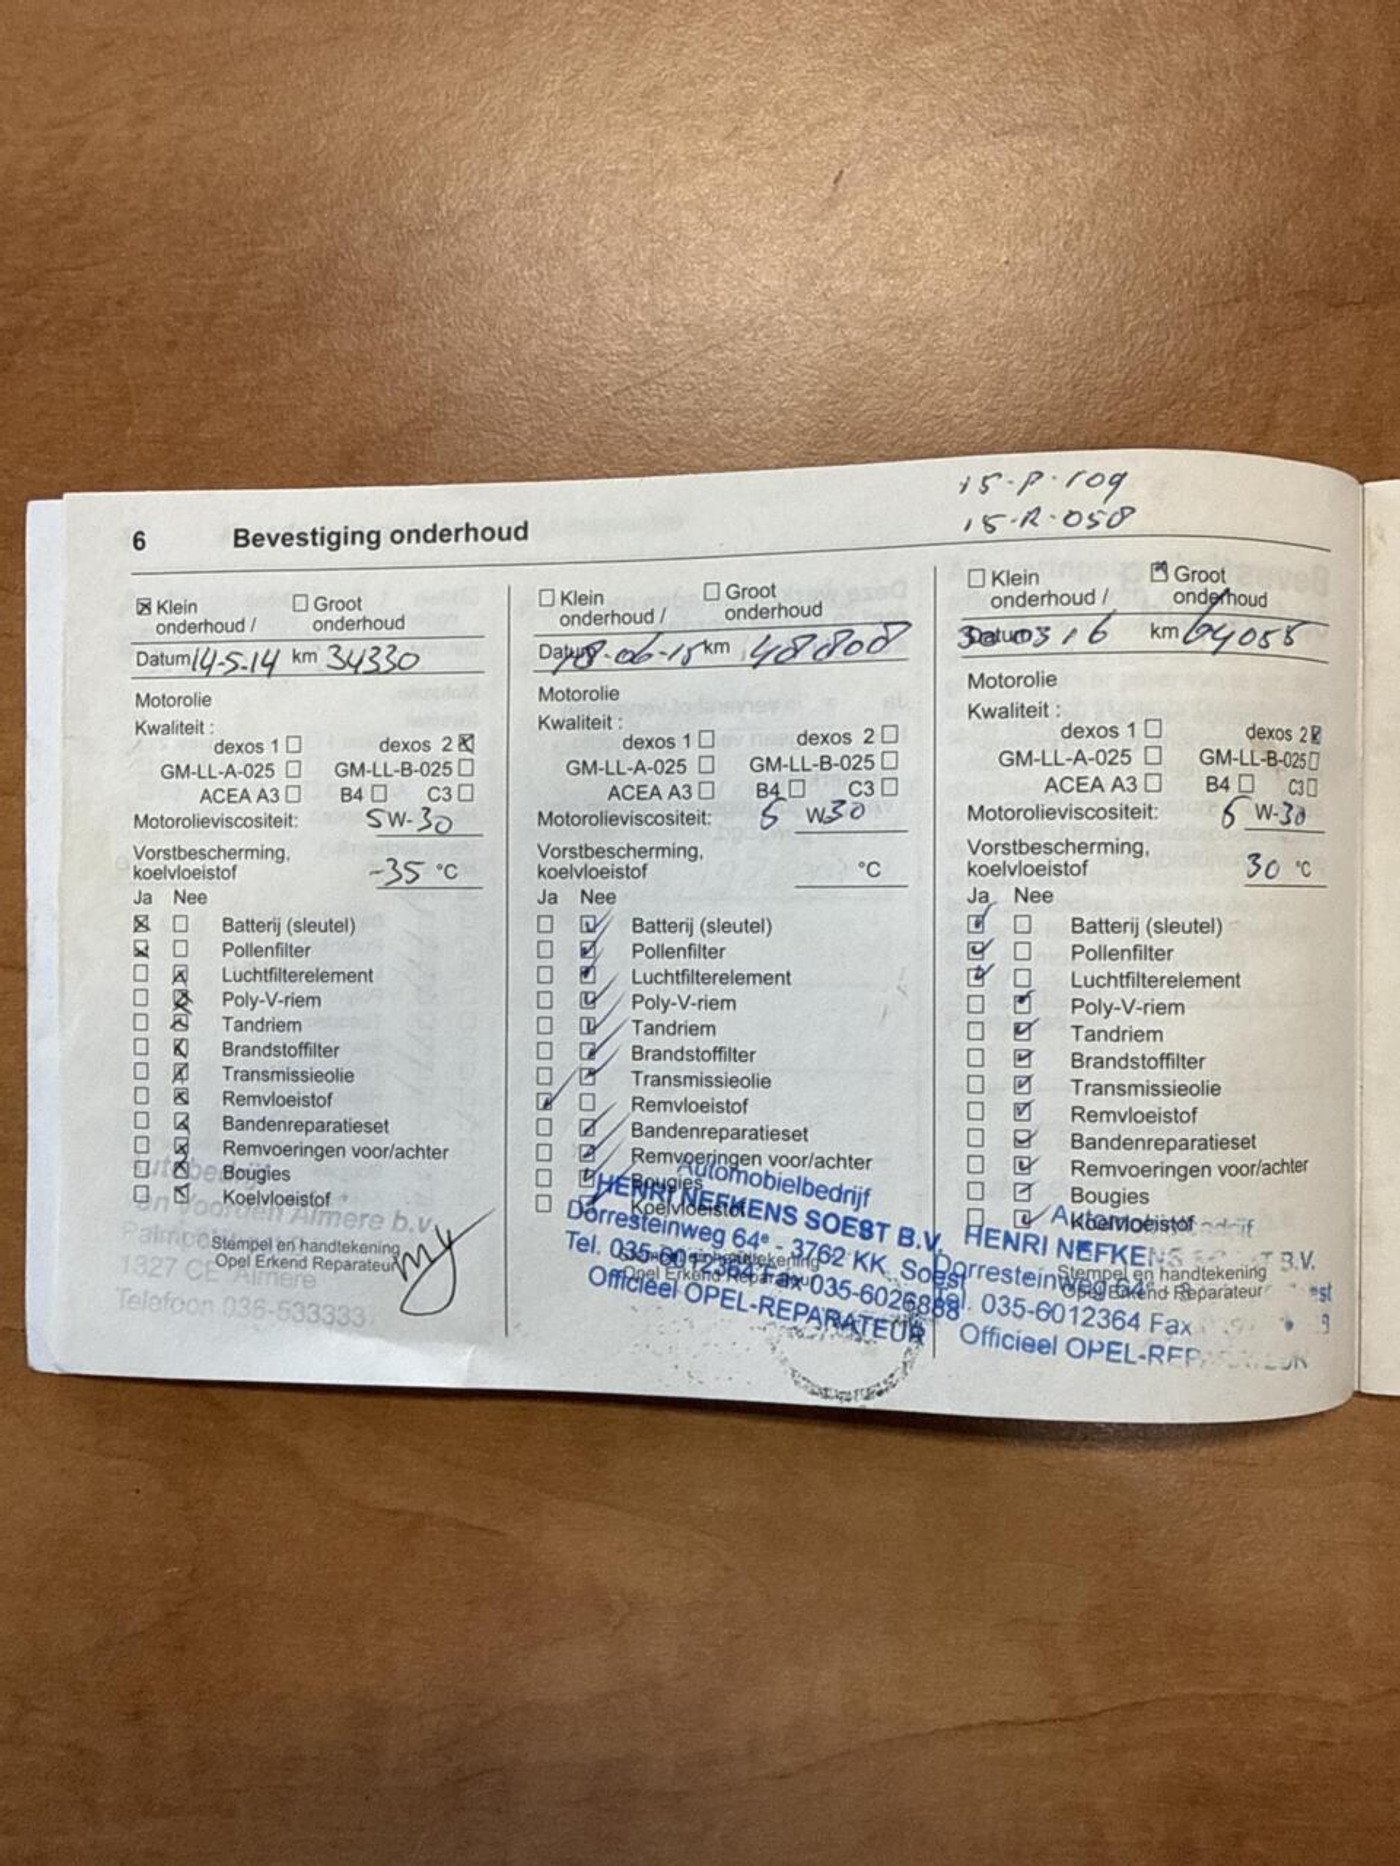 15-P-109
15-R-058
6 Bevestiging onderhoud
☒ Klein onderhoud / ☐ Groot onderhoud
Datum 14-5-14 km 34330
Motorolie
Kwaliteit :
dexos 1 ☐ dexos 2 ☒
GM-LL-A-025 ☐ GM-LL-B-025 ☐
ACEA A3 ☐ B4 ☐ C3 ☐
Motorolieviscositeit: 5W-30
Vorstbescherming,
koelvloeistof -35 °C
Ja Nee
☒ ☐ Batterij (sleutel)
☒ ☐ Pollenfilter
☐ ☒ Luchtfilterelement
☐ ☒ Poly-V-riem
☐ ☒ Tandriem
☐ ☒ Brandstoffilter
☐ ☒ Transmissieolie
☐ ☒ Remvloeistof
☐ ☒ Bandenreparatieset
☐ ☒ Remvoeringen voor/achter
☐ ☒ Bougies
☐ ☒ Koelvloeistof
van Voorden Almere b.v.
1327 CE Almere
Telefoon 036-533333
Stempel en handtekening
Opel Erkend Reparateur
☐ Klein onderhoud / ☐ Groot onderhoud
Datum 18-06-15 km 48808
Motorolie
Kwaliteit :
dexos 1 ☐ dexos 2 ☐
GM-LL-A-025 ☐ GM-LL-B-025 ☐
ACEA A3 ☐ B4 ☐ C3 ☐
Motorolieviscositeit: 5 W30
Vorstbescherming,
koelvloeistof °C
Ja Nee
☐ ☑ Batterij (sleutel)
☐ ☑ Pollenfilter
☐ ☑ Luchtfilterelement
☐ ☑ Poly-V-riem
☐ ☑ Tandriem
☐ ☑ Brandstoffilter
☐ ☑ Transmissieolie
☑ ☐ Remvloeistof
☐ ☑ Bandenreparatieset
☐ ☑ Remvoeringen voor/achter
☐ ☑ Bougies
☐ ☑ Koelvloeistof
Automobielbedrijf
HENRI NEFKENS SOEST B.V.
Dorresteinweg 64ᵉ - 3762 KK Soest
Tel. 035-6012364 Fax 035-6026888
Officieel OPEL-REPARATEUR
Stempel en handtekening
Opel Erkend Reparateur
☐ Klein onderhoud / ☑ Groot onderhoud
Datum 30 03 16 km 64055
Motorolie
Kwaliteit :
dexos 1 ☐ dexos 2 ☑
GM-LL-A-025 ☐ GM-LL-B-025 ☐
ACEA A3 ☐ B4 ☐ C3 ☐
Motorolieviscositeit: 5 W-30
Vorstbescherming,
koelvloeistof 30 °C
Ja Nee
☑ ☐ Batterij (sleutel)
☑ ☐ Pollenfilter
☑ ☐ Luchtfilterelement
☐ ☑ Poly-V-riem
☐ ☑ Tandriem
☐ ☑ Brandstoffilter
☐ ☑ Transmissieolie
☐ ☑ Remvloeistof
☐ ☑ Bandenreparatieset
☐ ☑ Remvoeringen voor/achter
☐ ☑ Bougies
☐ ☑ Koelvloeistof
HENRI NEFKENS B.V.
Dorresteinweg 64ᵉ
Tel. 035-6012364 Fax
Officieel OPEL-REPARATEUR
Stempel en handtekening
Opel Erkend Reparateur